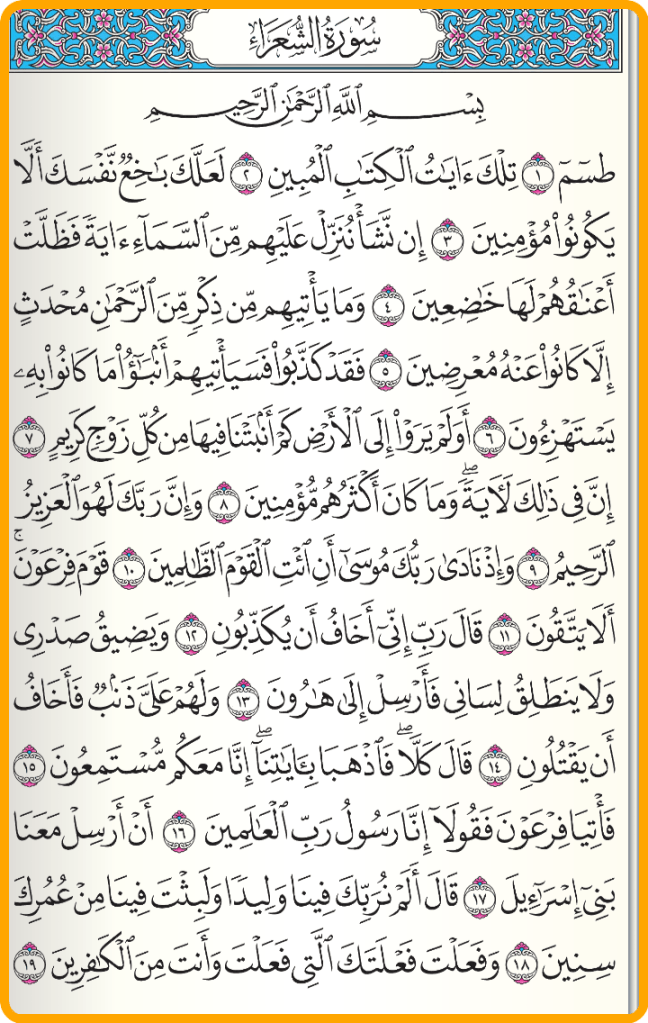 سُورَةُ الشُّعَرَاءِ
بِسْمِ ٱللَّهِ ٱلرَّحْمَٰنِ ٱلرَّحِيمِ
طسٓمٓ ١ تِلْكَ ءَايَٰتُ ٱلْكِتَٰبِ ٱلْمُبِينِ ٢ لَعَلَّكَ بَٰخِعٌ نَّفْسَكَ أَلَّا
يَكُونُوا۟ مُؤْمِنِينَ ٣ إِن نَّشَأْ نُنَزِّلْ عَلَيْهِم مِّنَ ٱلسَّمَآءِ ءَايَةً فَظَلَّتْ
أَعْنَٰقُهُمْ لَهَا خَٰضِعِينَ ٤ وَمَا يَأْتِيهِم مِّن ذِكْرٍ مِّنَ ٱلرَّحْمَٰنِ مُحْدَثٍ
إِلَّا كَانُوا۟ عَنْهُ مُعْرِضِينَ ٥ فَقَدْ كَذَّبُوا۟ فَسَيَأْتِيهِمْ أَنۢبَٰٓؤُا۟ مَا كَانُوا۟ بِهِۦ
يَسْتَهْزِءُونَ ٦ أَوَلَمْ يَرَوْا۟ إِلَى ٱلْأَرْضِ كَمْ أَنۢبَتْنَا فِيهَا مِن كُلِّ زَوْجٍ كَرِيمٍ ٧
إِنَّ فِى ذَٰلِكَ لَءَايَةً ۖ وَمَا كَانَ أَكْثَرُهُم مُّؤْمِنِينَ ٨ وَإِنَّ رَبَّكَ لَهُوَ ٱلْعَزِيزُ
ٱلرَّحِيمُ ٩ وَإِذْ نَادَىٰ رَبُّكَ مُوسَىٰٓ أَنِ ٱئْتِ ٱلْقَوْمَ ٱلظَّٰلِمِينَ ١٠ قَوْمَ فِرْعَوْنَ ۚ
أَلَا يَتَّقُونَ ١١ قَالَ رَبِّ إِنِّىٓ أَخَافُ أَن يُكَذِّبُونِ ١٢ وَيَضِيقُ صَدْرِى
وَلَا يَنطَلِقُ لِسَانِى فَأَرْسِلْ إِلَىٰ هَٰرُونَ ١٣ وَلَهُمْ عَلَىَّ ذَنۢبٌ فَأَخَافُ
أَن يَقْتُلُونِ ١٤ قَالَ كَلَّا ۖ فَٱذْهَبَا بِـَٔايَٰتِنَآ ۖ إِنَّا مَعَكُم مُّسْتَمِعُونَ ١٥
فَأْتِيَا فِرْعَوْنَ فَقُولَآ إِنَّا رَسُولُ رَبِّ ٱلْعَٰلَمِينَ ١٦ أَنْ أَرْسِلْ مَعَنَا
بَنِىٓ إِسْرَٰٓءِيلَ ١٧ قَالَ أَلَمْ نُرَبِّكَ فِينَا وَلِيدًا وَلَبِثْتَ فِينَا مِنْ عُمُرِكَ
سِنِينَ ١٨ وَفَعَلْتَ فَعْلَتَكَ ٱلَّتِى فَعَلْتَ وَأَنتَ مِنَ ٱلْكَٰفِرِينَ ١٩